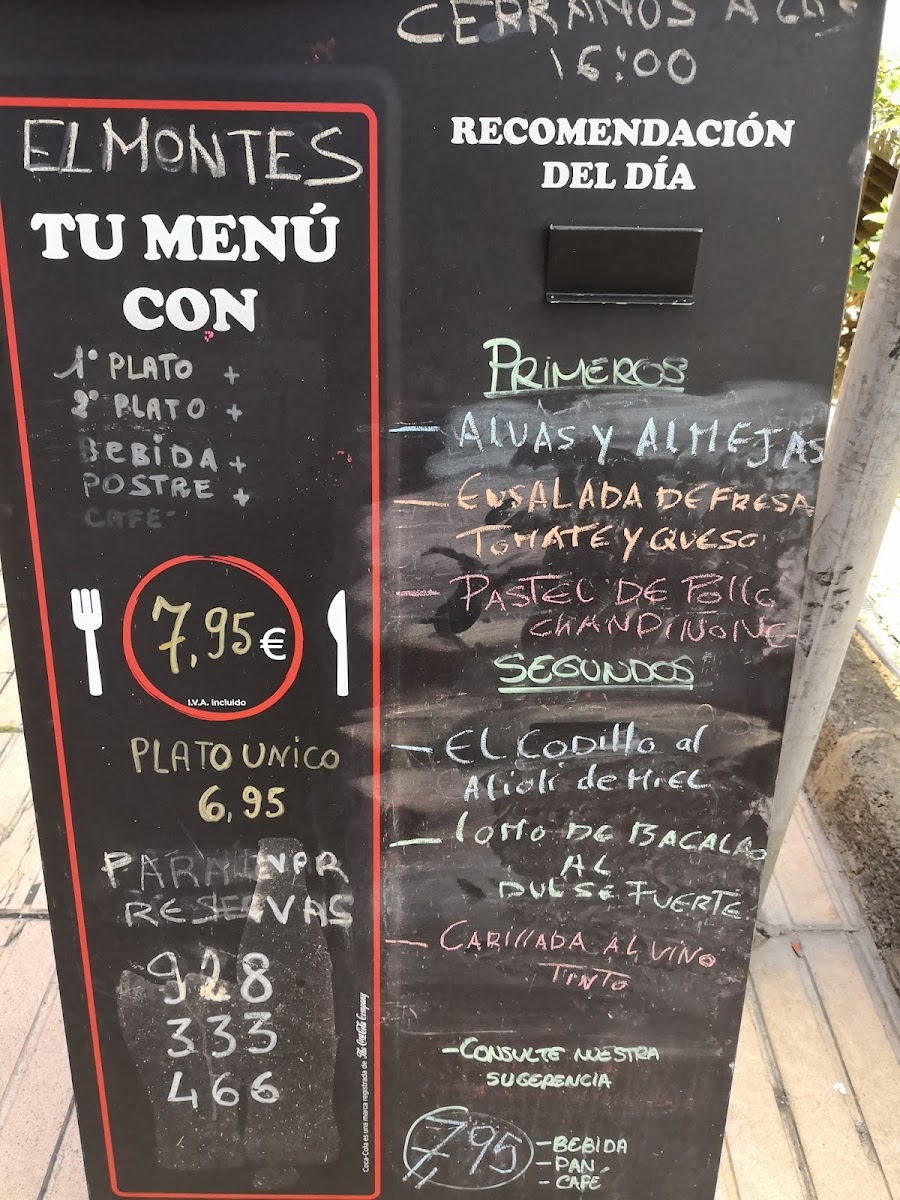 CERRAMOS A LAS
16:00
EL MONTES
TU MENÚ
CON
1º PLATO +
2º PLATO +
BEBIDA +
POSTRE +
CAFÉ
7,95 €
I.V.A. incluido
PLATO UNICO
6,95
PARA LLEVAR
RESERVAS
928
333
466
Coca-Cola es una marca registrada de The Coca-Cola Company
RECOMENDACIÓN
DEL DÍA
PRIMEROS
- ALUAS Y ALMEJAS
- ENSALADA DE FRESA
TOMATE Y QUESO
- PASTEL DE POLLO
CHANDINONE
SEGUNDOS
- EL CODILLO al
Alioli de MIEL
- LOMO DE BACALAO
AL
DULSE FUERTE
- CARILLADA AL VINO
TINTO
- CONSULTE NUESTRA
SUGERENCIA
7,95
- BEBIDA
- PAN
- CAFÉ